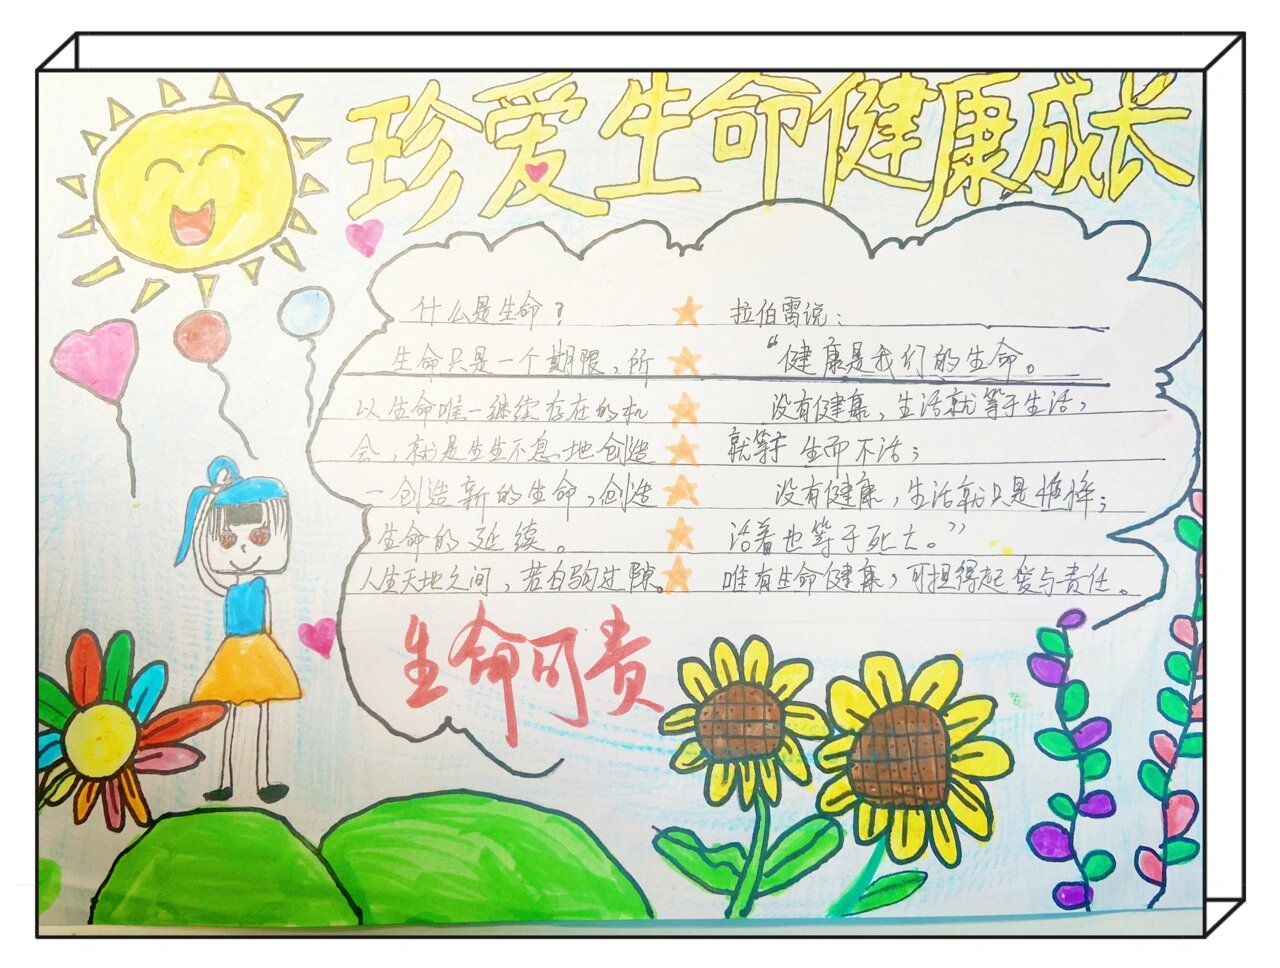 珍爱生命健康成长
什么是生命？
生命只是一个期限，所
以生命唯一继续存在的机
会，就是生生不息地创造
一创造新的生命，创造
生命的延续。
人生天地之间，若白驹过隙。
生命可贵
拉伯雷说：
“健康是我们的生命。
没有健康，生活就等于生活，
就等于生而不活；
没有健康，生活就只是憔悴；
活着也等于死亡。”
唯有生命健康，可担得起爱与责任。